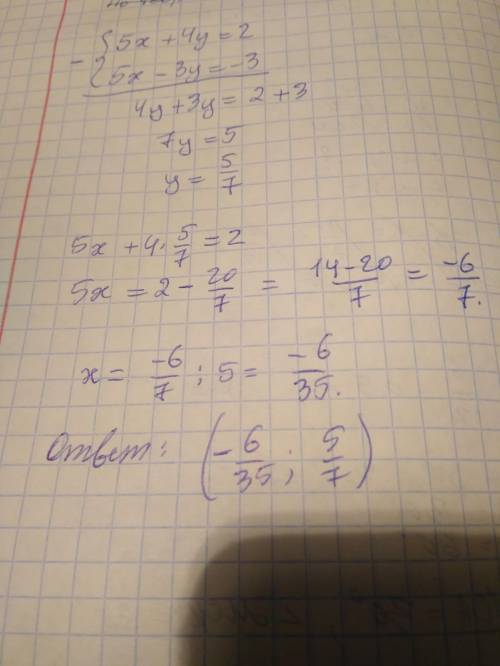 - { 5x + 4y = 2
5x - 3y = -3
4y + 3y = 2 + 3
7y = 5
y = 5/7
5x + 4 · 5/7 = 2
5x = 2 - 20/7 = (14-20)/7 = -6/7.
x = -6/7 : 5 = -6/35.
Ответ: (-6/35; 5/7)